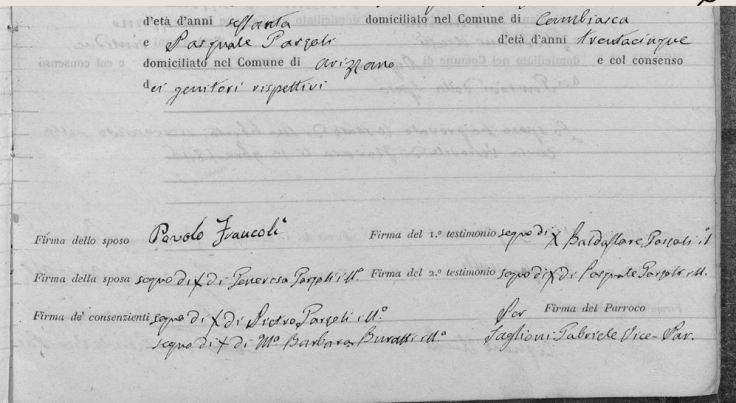 d'età d'anni sessanta domiciliato nel Comune di Cambiasca
e Pasquale Pargoli d'età d'anni trentacinque
domiciliato nel Comune di Arizzano e col consenso
dei genitori rispettivi
Firma dello sposo Pavolo Francoli Firma del 1.º testimonio segno di X Baldassare Pargoli il
Firma della sposa segno di X di Generosa Pargoli ill.º Firma del 2.º testimonio segno di X di Pasquale Pargoli ill.
Firma de' consenzienti segno di X di Pietro Pargoli ill.º Por Firma del Parroco
segno di X di M.ª Barbara Buratti ill.º Taglioni Gabriele Vice-Par.